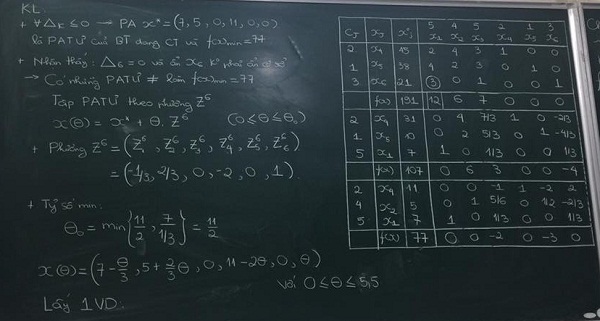 KL:
+ ∀Δₖ ≤ 0 → PA x* = (7, 5, 0, 11, 0, 0)
là PATƯ của BT dạng CT và f(x)min = 77
+ Nhận thấy: Δ₆ = 0 và ẩn x₆ k° phải ẩn cơ sở
→ Có những PATƯ ≠ f(x)min = 77
Tập PATƯ theo phương Z⁶
x(θ) = x* + θ. Z⁶ (0 ≤ θ ≤ θ₀)
+ Phương Z⁶ = (Z₁⁶, Z₂⁶, Z₃⁶, Z₄⁶, Z₅⁶, Z₆⁶)
= (-1/3, 2/3, 0, -2, 0, 1).
+ Tỷ số min:
θ₀ = min{11/2, 7/(1/3)} = 11/2
x(θ) = (7 - θ/3, 5 + 2/3 θ, 0, 11 - 2θ, 0, θ)
với 0 ≤ θ ≤ 5,5
Lấy 1 VD:
5 4 5 2 1 3
CJ xJ x*J x₁ x₂ x₃ x₄ x₅ x₆
2 x₄ 45 2 4 3 1 0 0
1 x₅ 38 4 2 3 0 1 0
3 x₆ 21 3 0 1 0 0 1
f(x) 191 12 6 7 0 0 0
2 x₄ 31 0 4 7/3 1 0 -2/3
1 x₅ 10 0 2 5/3 0 1 -4/3
5 x₁ 7 1 0 1/3 0 0 1/3
f(x) 107 0 6 3 0 0 -4
2 x₄ 11 0 0 -1 1 -2 2
4 x₂ 5 0 1 5/6 0 1/2 -2/3
5 x₁ 7 1 0 1/3 0 0 1/3
f(x) 77 0 0 -2 0 -3 0